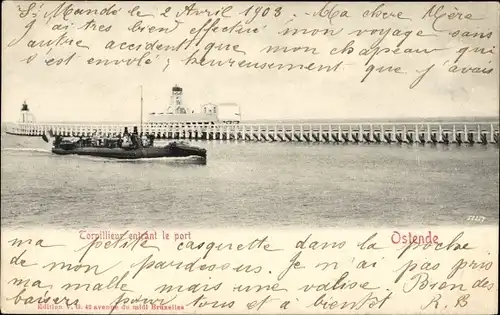 St Mandé le 2 Avril 1903. Ma chère Mère
J'ai très bien effectué mon voyage sans
autre accident, que mon chapeau qui
s'est envolé, heureusement que j'avais
Torpilleur entrant le port
Ostende
ma petite casquette dans la poche
de mon pardessus. Je n'ai pas pris
ma malle mais une valise. Bien des
baisers pour tous et à bientôt R.B
Edition V. G. 42 avenue du midi Bruxelles